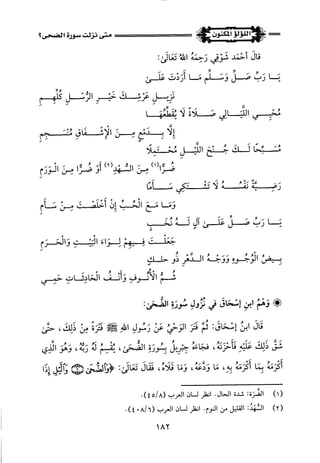 اللؤلؤ المكنون
متى نزلت سورة الضحى؟
قَالَ أَحْمَد شَوْقِي رَحِمَهُ اللهُ تَعَالَىٰ:
يَـا رَبِّ صَـلِّ وَسَـلِّم مَـا أَرَدْتَ عَلَـىٰ
نَزِيـلِ عَرْشِـكَ خَيْـرِ الرُّسْـلِ كُلِّهِـمِ
مُحْيِـي اللَّيَـالِي صَـلَاةً لَا يُقَطِّعُهَـا
إِلَّا بِـدَمْعٍ مِـنَ الْإِشْـفَاقِ مُنْسَـجِمِ
مُسَـبِّحًا لَـكَ جُـنْحَ اللَّيْـلِ مُحْـتَمِلًا
ضُـرًّا(١) مِـنَ السُّـهْدِ(٢) أَوْ ضُـرًّا مِـنَ الْـوَرَمِ
رَضِـيَّةٌ نَفْسُـهُ لَا تَشْـتَكِي سَـأَمًا
وَمَـا مَـعَ الْحُـبِّ إِنْ أَخْلَصْـتَ مِـنْ سَـأَمِ
يَـا رَبِّ صَـلِّ عَلَـىٰ آلٍ لَـهُ نُخَـبٍ
جَعَلْـتَ فِـيهِمْ لِـوَاءَ الْبَيْـتِ وَالْحَـرَمِ
بِـيضُ الْوُجُـوهِ وَوَجْـهُ الـدَّهْرِ ذُو حَلَـكٍ
شُـمُّ الْأُنُـوفِ وَأَنْـفُ الْحَادِثَـاتِ حَمِـي
وَهْمُ ابْنِ إِسْحَاقَ فِي نُزُولِ سُورَةِ الضُّحَىٰ:
قَالَ ابْنُ إِسْحَاقَ: ثُمَّ فَتَرَ الْوَحْيُ عَنْ رَسُولِ اللهِ ﷺ فَتْرَةً مِنْ ذَلِكَ، حَتَّىٰ
شَقَّ ذَلِكَ عَلَيْهِ فَأَحْزَنَهُ، فَجَاءَهُ جِبْرِيلُ بِسُورَةِ الضُّحَىٰ، يُقْسِمُ لَهُ رَبُّهُ، وَهُوَ الَّذِي
أَكْرَمَهُ بِمَا أَكْرَمَهُ بِهِ، مَا وَدَّعَهُ، وَمَا قَلَاهُ، فَقَالَ تَعَالَىٰ: ﴿وَالضُّحَىٰ ۝ وَاللَّيْلِ إِذَا
(١) الضَّرَّة: شدة الحال. انظر لسان العرب (٤٥/٨).
(٢) السُّهْدُ: القليل من النوم. انظر لسان العرب (٤٠٨/٦).
١٨٢